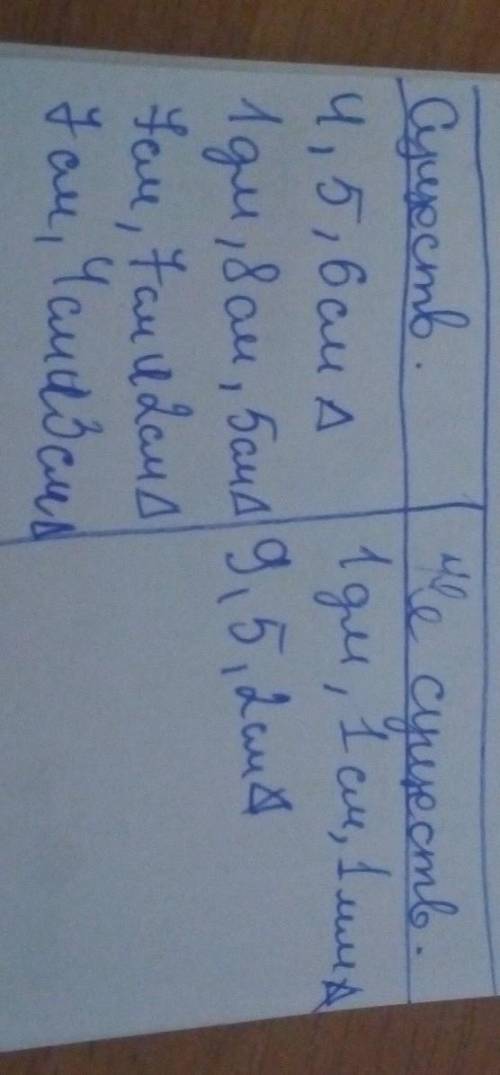 Существ.
Не существ.
4, 5, 6см Δ
1 дм, 1 см, 1 мм Δ
1 дм, 8 см, 5 см Δ
9, 5, 2 см Δ
7 см, 7 см и 2 см Δ
7 см, 4 см и 3 см Δ